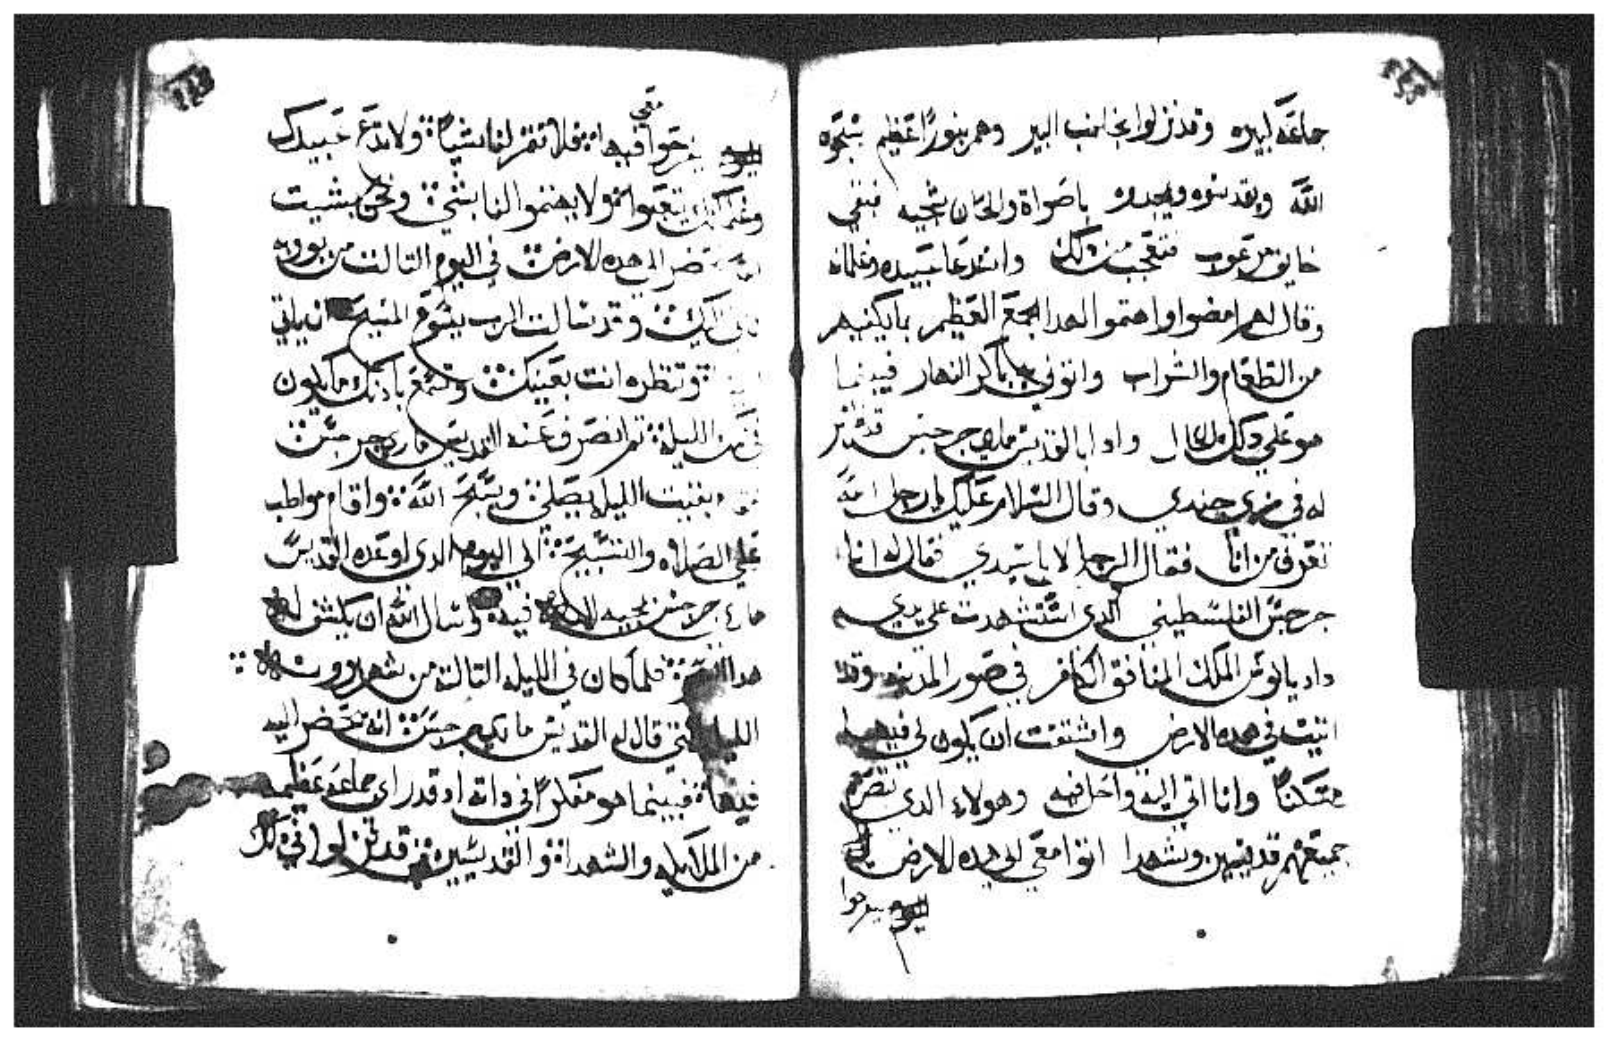 جماعه كبيره وقد نزلوا بجانب البير وهم بنورًا عظيم يسبحوه
الله ويقدسوه ويمجدوه باصواة والحان شجيه فبقي
خايف مرعوب متعجب من دلك واستدعا عبيده وغلمانه
وقال لهم امضوا واهتموا لهدا الجمع العظيم بما يكفيهم
من الطعام والشراب واتوني باكر النهار فبينما
هو علي دلك الحال وادا بالقديس ماري جرجس قد ظهر
له في زي جندي وقال السلام عليك يا رجل امَا
تعرفني من انا فقال الرجل لا يا سيدي فقال له انا
جرجس الفلسطيني الدي استشهدت علي يدي
داديانوس الملك المنافق الكافر في صور المدينه وقد
اتيت في هده الارض واشتقت ان يكون لي فيها
مسكنًا وانا اتي اليه واحل فيه وهولاء الدي تنظرهم
جميعهم قديسين وشهدا اتوا معي الي هده الارض
ليفرحوا
ليفرحوا معي فيها فلا تقم لنا بشياة ولا تدع عبيدك
وغلمانك يتعبوا ولا يهتموا لنا بشي ونحن بشيت
الله نحضر الي هده الارض في اليوم التالت من بوونه
وقد سالت الرب يسوع المسيح ان ياتي
وتنظره انت بعينيك وتسمع بادنك ما يكون
في تلك الليلة تم انصرف عنه القديس ماري جرجس
بقيت الليله يصلي ويسبح الله واقام مواظب
علي الصلاه والتسبيح الي اليوم الدي اوعده القديس
ماري جرجس بمجيه فيه وسال الله ان يكشف له
هدا السر فلما كان في الليله التالتة من شهر بوونه
الليله التي قال له القديس ماري جرجس انه يحضر اليه
فيها فبينما هو مفكرًا في داته اد قد راي جماعة عظيمه
من الملايكه والشهداة والقديسين قد نزلوا في تلك